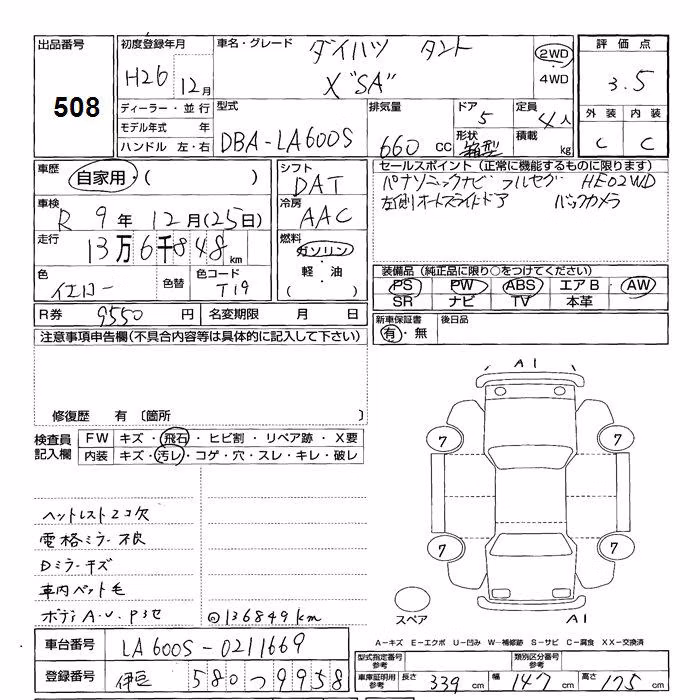 出品番号
508
初度登録年月
H26 12月
車名・グレード ダイハツ タント
X "SA"
2WD
4WD
評価点
3.5
外装 内装
C C
ディーラー・並行
モデル年式 年
ハンドル 左・右
型式
DBA-LA600S
排気量
660 CC
ドア 5
形状 箱型
定員 4人
積載 kg
車歴
自家用・( )
車検
R 9年 12月(25日)
走行
13万6千848 km
色
イエロー
色替
色コード
T19
シフト
DAT
冷房
AAC
燃料
ガソリン
軽・油
( )
セールスポイント(正常に機能するものに限ります)
パナソニックナビ フルセグ HE02WD
左側オートスライドドア バックカメラ
装備品(純正品に限り○をつけてください)
PS PW ABS エアB AW
SR ナビ TV 本革
R券 9550 円 名変期限 月 日
新車保証書
有・無
後日品
注意事項申告欄(不具合内容等は具体的に記入して下さい)
修復歴 有 〔箇所 〕
検査員
記入欄
FW キズ・飛石・ヒビ割・リペア跡・X要
内装 キズ・汚レ・コゲ・穴・スレ・キレ・破レ
ヘットレスト2コ欠
電格ミラー不良
Dミラーキズ
車内ペット毛
ボディA.U.P3セ
◎136849km
A1
7 7
7 7
スペア
A1
A-キズ E-エクボ U-凹み W-補修跡 S-サビ C-腐食 XX-交換済
車台番号 LA600S-0211669
登録番号 伊豆 580つ9958
型式指定番号
参考
類別区分番号
参考
車庫証明用
参考
長さ 339 cm 幅 147 cm 高さ 175 cm